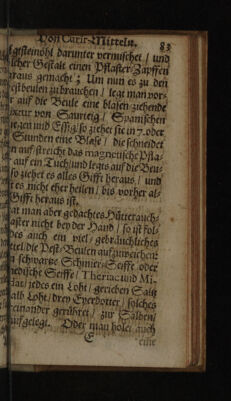 Von Curir-Mitteln. 83
gesteinöhl darunter vermischet / und
licher Gestalt einen Pflaster-Zapffen
raus gemacht; Um nun es zu den
estbeulen zu brauchen / legt man vor-
r auf die Beule eine blasen-ziehende
von Saurteig / Spanischen
egen und Essig / so ziehet sie in 7. oder
Stunden eine Blase / die schneidet
n auf / streicht das magnetische Pfla-
auf ein Tuch / und legts auf die Beu-
so ziehet es alles Gifft heraus / und
t es nicht eher heilen / bis vorher al-
Gifft heraus ist.
at man aber gedachtes Hüttenrauch-
aster nicht bey der Hand / so ist fol-
des auch ein viel / gebräuchliches
tel / die Pest-Beulen aufzuweichen:
schwartze Schmier-Seiffe oder
nedische Seiffe / Theriac und Mi-
dat / jedes ein Loht / gerieben Saltz
alb Loht / drey Eyerdotter / solches
einander gerühret / zur Salben /
aufgelegt. Oder man holet auch
E eine